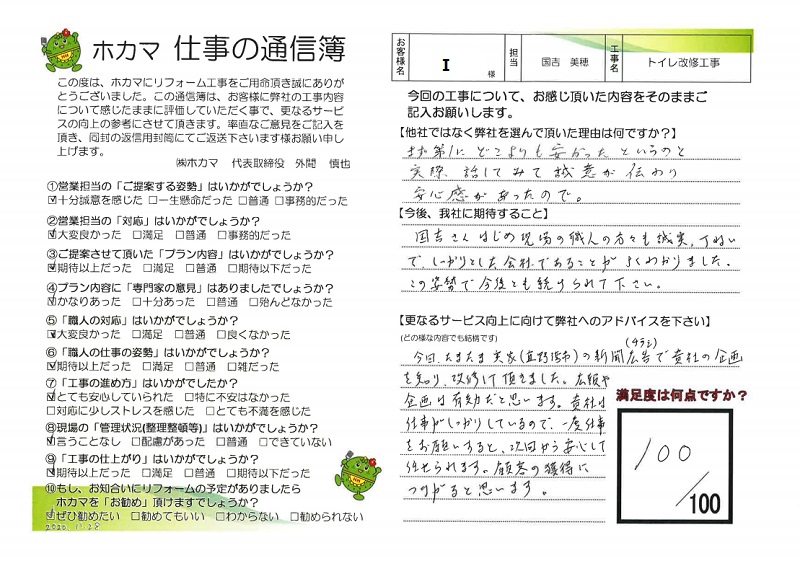 ホカマ 仕事の通信簿
この度は、ホカマにリフォーム工事をご用命頂き誠にありが
とうございました。この通信簿は、お客様に弊社の工事内容
について感じたままに評価していただく事で、更なるサービ
スの向上の参考にさせて頂きます。率直なご意見をご記入を
頂き、同封の返信用封筒にてご返送下さいます様お願い申し
上げます。
㈱ホカマ 代表取締役 外間 慎也
①営業担当の「ご提案する姿勢」はいかがでしょうか?
☑十分誠意を感じた □一生懸命だった □普通 □事務的だった
②営業担当の「対応」はいかがでしょうか?
☑大変良かった □満足 □普通 □事務的だった
③ご提案させて頂いた「プラン内容」はいかがでしょうか?
☑期待以上だった □満足 □普通 □期待以下だった
④プラン内容に「専門家の意見」はありましたでしょうか?
☑かなりあった □十分あった □普通 □殆んどなかった
⑤「職人の対応」はいかがでしょうか?
☑大変良かった □満足 □普通 □良くなかった
⑥「職人の仕事の姿勢」はいかがでしょうか?
☑期待以上だった □満足 □普通 □雑だった
⑦「工事の進め方」はいかがでしたか?
☑とても安心していられた □特に不安はなかった
□対応に少しストレスを感じた □とても不満を感じた
⑧現場の「管理状況(整理整頓等)」はいかがでしょうか?
☑言うことなし □配慮があった □普通 □できていない
⑨「工事の仕上がり」はいかがでしょうか?
☑期待以上だった □満足 □普通 □期待以下だった
⑩もし、お知合いにリフォームの予定がありましたら
ホカマを「お勧め」頂けますでしょうか?
☑ぜひ勧めたい □勧めてもいい □わからない □勧められない
2020.11.28
お客様名 I 様 担当 国吉 美穂 工事名 トイレ改修工事
今回の工事について、お感じ頂いた内容をそのままご
記入お願いします。
【他社ではなく弊社を選んで頂いた理由は何ですか?】
どこよりも安かったというのと
実際 話してみて誠意が伝わり
安心感があったので。
【今後、我社に期待すること】
国吉さんはじめ現場の職人の方々も誠実、丁ねい
で、しっかりとした会社であることがよくわかりました。
この姿勢で今後とも続けられて下さい。
【更なるサービス向上に向けて弊社へのアドバイスを下さい】
(どの様な内容でも結構です)
(チラシ)
今回、たまたま実家(宜野湾市)の新聞広告で貴社の企画
を知り、改修して頂きました。広報や
企画は有効だと思います。貴社は
仕事がしっかりしているので、一度仕事
をお願いすると、次回から安心して
任せられます。顧客の獲得に
つながると思います。
満足度は何点ですか?
100
/100